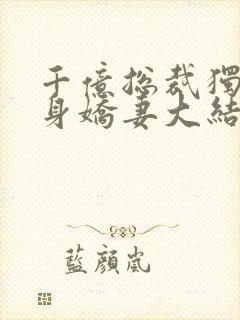 千億總裁獨
身嬌妻大結
藍顏嵐